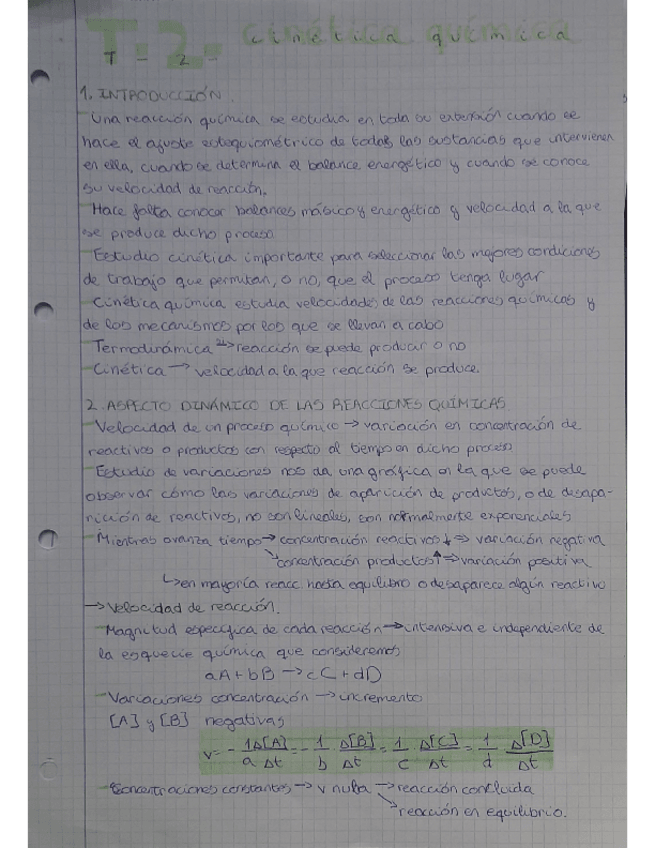 T-2- cinética química
1. INTRODUCCIÓN.
-Una reacción química se estudia en toda su extensión cuando se
hace el ajuste estequiométrico de todas las sustancias que intervienen
en ella, cuando se determina el balance energético y cuando se conoce
su velocidad de reacción.
-Hace falta conocer balances másico y energético y velocidad a la que
se produce dicho proceso
-Estudio cinética importante para seleccionar las mejores condiciones
de trabajo que permitan, o no, que el proceso tenga lugar
-Cinética química estudia velocidades de las reacciones químicas y
de los mecanismos por los que se llevan a cabo
-Termodinámica → reacción se puede producir o no
-Cinética → velocidad a la que reacción se produce.
2. ASPECTO DINÁMICO DE LAS REACCIONES QUÍMICAS
-Velocidad de un proceso químico → variación en concentración de
reactivos o productos con respecto al tiempo en dicho proceso
-Estudio de variaciones nos da una gráfica en la que se puede
observar cómo las variaciones de aparición de productos, o de desapa-
rición de reactivos, no son lineales, son normalmente exponenciales
-Mientras avanza tiempo → concentración reactivos ↓ ⇒ variación negativa
↘ concentración productos ↑ ⇒ variación positiva
↳ en mayoría reacc. hasta equilibro o desaparece algún reactivo
→ Velocidad de reacción.
-Magnitud específica de cada reacción → intensiva e independiente de
la esquecie química que consideremos
aA + bB → cC + dD
-Variaciones concentración → incremento
[A] y [B] negativas
v = - 1/a Δ[A]/Δt = - 1/b Δ[B]/Δt = 1/c Δ[C]/Δt = 1/d Δ[D]/Δt
-Concentraciones constantes → v nula → reacción concluida
↘ reacción en equilibrio.